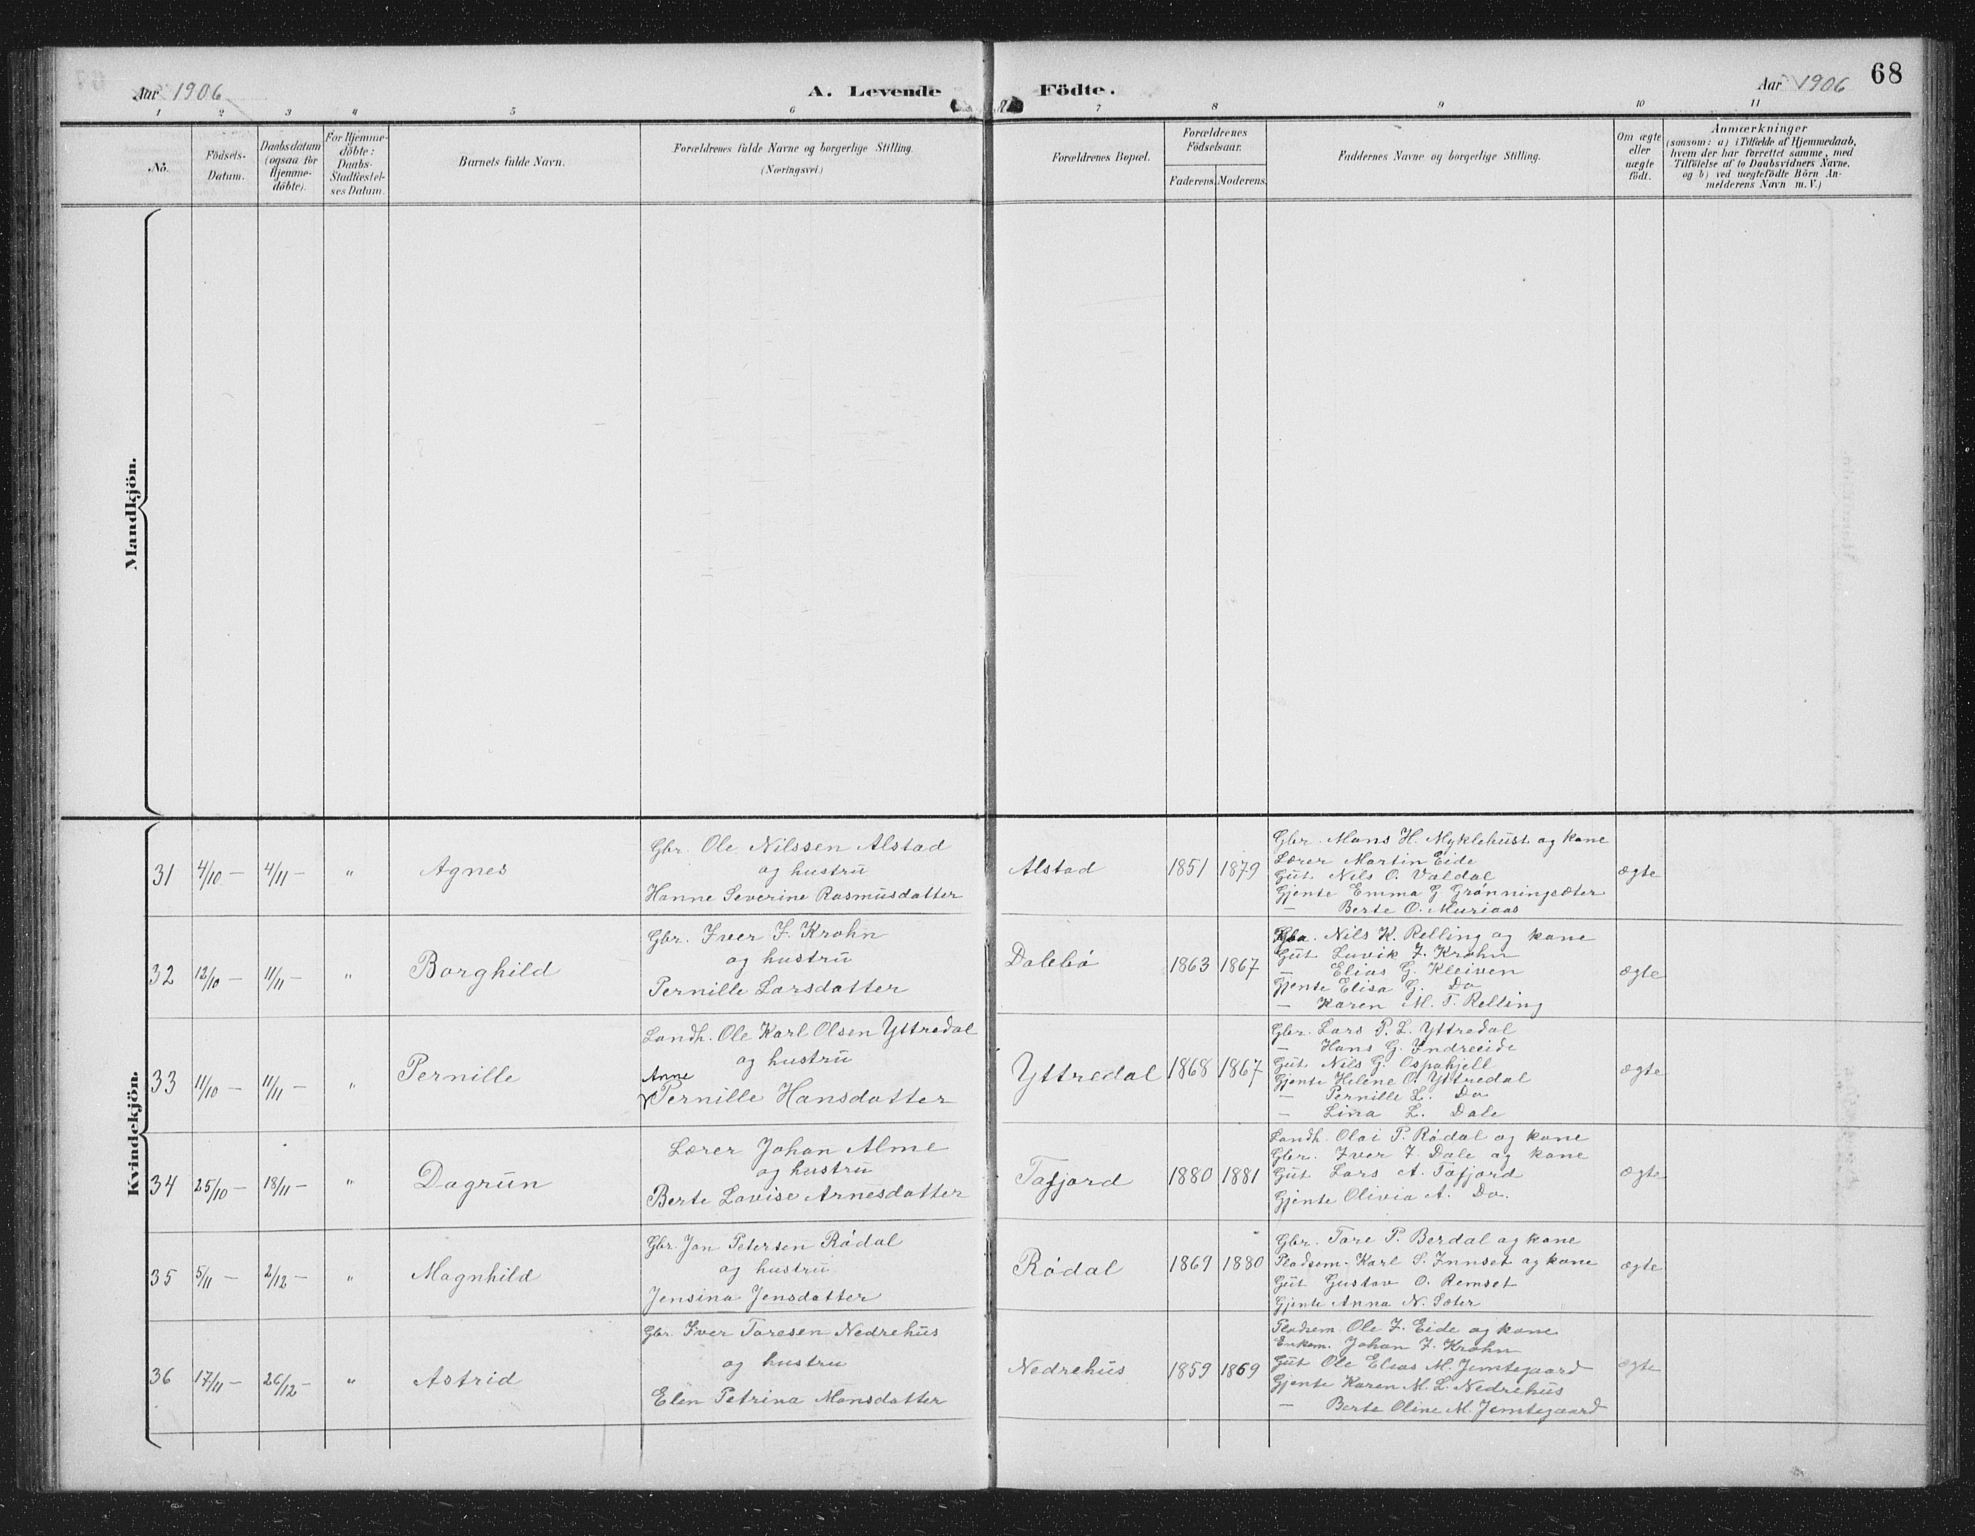 Aar 1906
A. Levende Födte.
Aar 1906
68
1 2 3 4 5 6 7 8 9 10 11
No.
Födsels-
Datum.
Daabsdatum
(ogsaa for
Hjemme-
döbte).
For Hjemme-
döbte:
Daabs-
Stadfæstel-
ses Datum.
Barnets fulde Navn.
Forældrenes fulde Navne og borgerlige Stilling.
(Næringsvei.)
Forældrenes Bopæl.
Forældrenes
Födselsaar.
Faderens. Moderens.
Faddernes Navne og borgerlige Stilling.
Om ægte
eller
uægte
födt.
Anmærkninger
(saasom: a) i Tilfælde af Hjemmedaab,
hvem der har forrettet samme, med
Tilföielse af to Daabsvidners Navne,
og b) ved uægtefödte Börn An-
melderens Navn m. V.)
Mandkjön.
Kvindekjön.
31 4/10 — 4/11 — " Agnes
Gbr. Ole Nilssen Alstad
og hustru
Hanne Severine Rasmusdatter
Alstad 1851 1879
Gbr. Mons H. Myklebust og kone
Lærer Martin Eide
Gut Nils O. Valdal
Gjente Emma G Grønningsæter
— Berte O. Muriaas
ægte
32 12/10 — 11/11 — " Borghild
Gbr. Iver J. Krohn
og hustru
Pernille Larsdatter
Dalebø 1863 1867
Gbr. Nils K. Relling og kone
Gut Luvik J. Krohn
— Elias G. Kleiven
Gjente Elisa G. Do
— Karen M. T. Relling
ægte
33 11/10 — 11/11 — " Pernille
Landh. Ole Karl Olsen Yttredal
og hustru
Anne
Pernille Hansdatter
Yttredal 1868 1867
Gbr. Lars P. L. Yttredal
— Hans G. Indreeide
Gut Nils G. Ospahjell
Gjente Helene O. Yttredal
— Pernille L. Do
— Lina L. Dale
ægte
34 25/10 — 18/11 — " Dagrun
Lærer Johan Alme
og hustru
Berte Lovise Arnesdatter
Tafjord 1880 1881
Landh. Olai P. Rødal og kone
Gbr. Iver J. Dale og kone
Gut Lars A. Tafjord
Gjente Olivia A. Do.
ægte
35 5/11 — 2/12 — " Magnhild
Gbr. Jon Petersen Rødal
og hustru
Jensina Jensdatter
Rødal 1869 1880
Gbr. Tore P. Berdal og kone
Pladsem. Karl S. Innset og kone
Gut Gustav O. Remset
Gjente Anna N. Sæter
ægte
36 17/11 — 26/12 — " Astrid
Gbr. Iver Toresen Nedrehus
og hustru
Elen Petrina Monsdatter
Nedrehus 1859 1869
Pladsem. Ole J. Eide og kone
Enkem. Johan J. Krohn
Gut Ole Elias M. Jemtegaard
Gjente Karen M. L. Nedrehus
— Berte Oline M. Jemtegaard
ægte